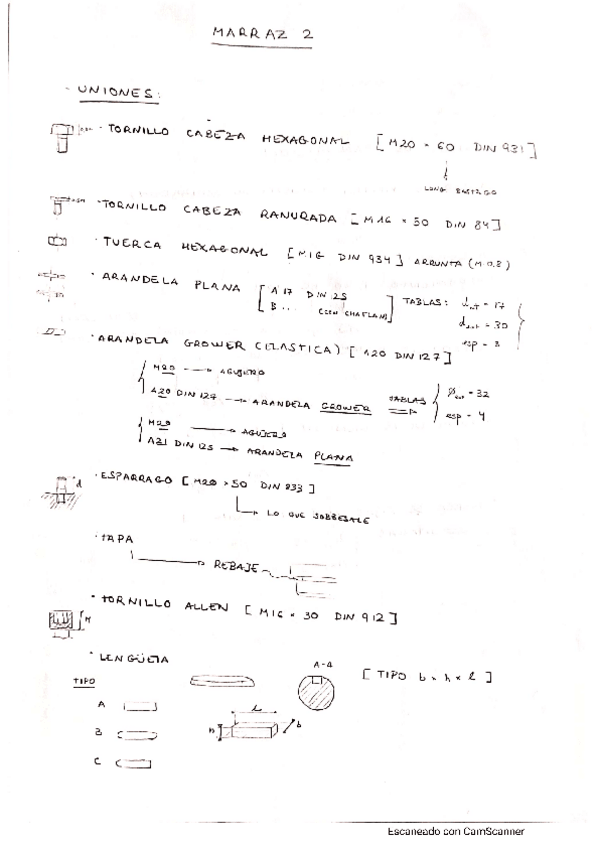 MARRAZ 2
· UNIONES:
· TORNILLO CABEZA HEXAGONAL [M20 × 60 DIN 931]
LONG VASTAGO
· TORNILLO CABEZA RANURADA [M16 × 50 DIN 84]
· TUERCA HEXAGONAL [M16 DIN 934] (M 0.8)
· ARANDELA PLANA [A 17 DIN 125 TABLAS: d int = 17
B ... (CON CHAFLAN)] d ext = 30
esp = 3
· ARANDELA GROWER (ELASTICA) [A20 DIN 127]
M20 → AGUJERO
A20 DIN 127 → ARANDELA GROWER TABLAS ⇒ Ø ext = 32
esp = 4
M20 → AGUJERO
A21 DIN 125 → ARANDELA PLANA
· ESPARRAGO [M20 × 50 DIN 833]
d
LO QUE SOBRESALE
· TAPA
→ REBAJE
· TORNILLO ALLEN [M16 × 30 DIN 912]
· LENGÜETA
TIPO
A-A
[TIPO b × h × l]
A
B
C
l
h
b
Escaneado con CamScanner